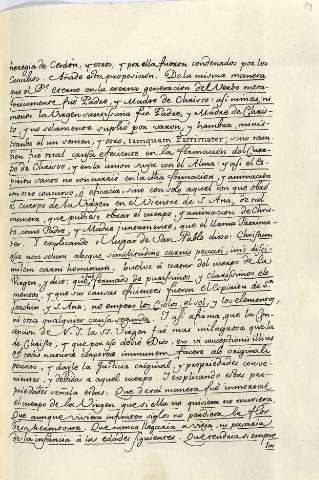 heregia de Cerdon, y otros, y por ella fueron condenados por los
Concilios. Añade esta proposicion. De la misma manera
que el Pe. eterno en la eterna generacion del Verbo meta-
foricamente fue Padre, y Madre de Christo: asi ni mas, ni
menos la Virgen santissima fue Padre, y Madre de Chris-
to, y no solamente suplio por varon, y hembra, minis-
trando el un semen, y otro, tamquam Patrimater: sino tam-
bien fue total causa eficiente en la formacion del Cuer-
po de Christo, y en la union suya con el Alma: y asi el Es-
piritu santo no concurrio en la otra formacion, y animacion
con otro concurso, o eficacia, sino con solo aquel con que obro
el cuerpo de la Virgen en el Vientre de S. Ana, de tal
manera, que pudiese obrar el cuerpo, y animacion de Chris-
to, como Padre, y Madre juntamente, que el llama Patrima-
ter. I explicando el lugar de San Pablo dixo: Christum
esse non solum absque similitudine carnis peccati, imo dissi-
milem carni hominum, buelve a tratar del cuerpo de la
Virgen, y dice: que fue formado de purissimos, y clarissimos ele-
mentos, y que sus causas eficientes fueron el Espiritu de Sn.
Joachin, y S. Ana, no empero los Cielos, el sol, y los elementos,
ni otra qualquier causa segunda. I asi afirma que la Con-
cepcion de N. S. la SS. Virgen fue mas milagrosa que la
de Christo, y que por eso devio Dios, eo in conceptionis illius
et eius natura corporea immunem facere ab originali
peccato, y darle la justicia original, y propriedades conve-
nientes, y debidas a aquel cuerpo. I explicando estas pro-
priedades señala estas. Que devia manera fue immortal
el cuerpo de la Virgen que si ella no quisiera no muriera.
Que aunque viviera infinitos siglos no perdiera la flor
de su hermosura. Que nunca llegaria a vieja, ni pasaria
de la infancia a las edades siguientes. Que tendria siempre